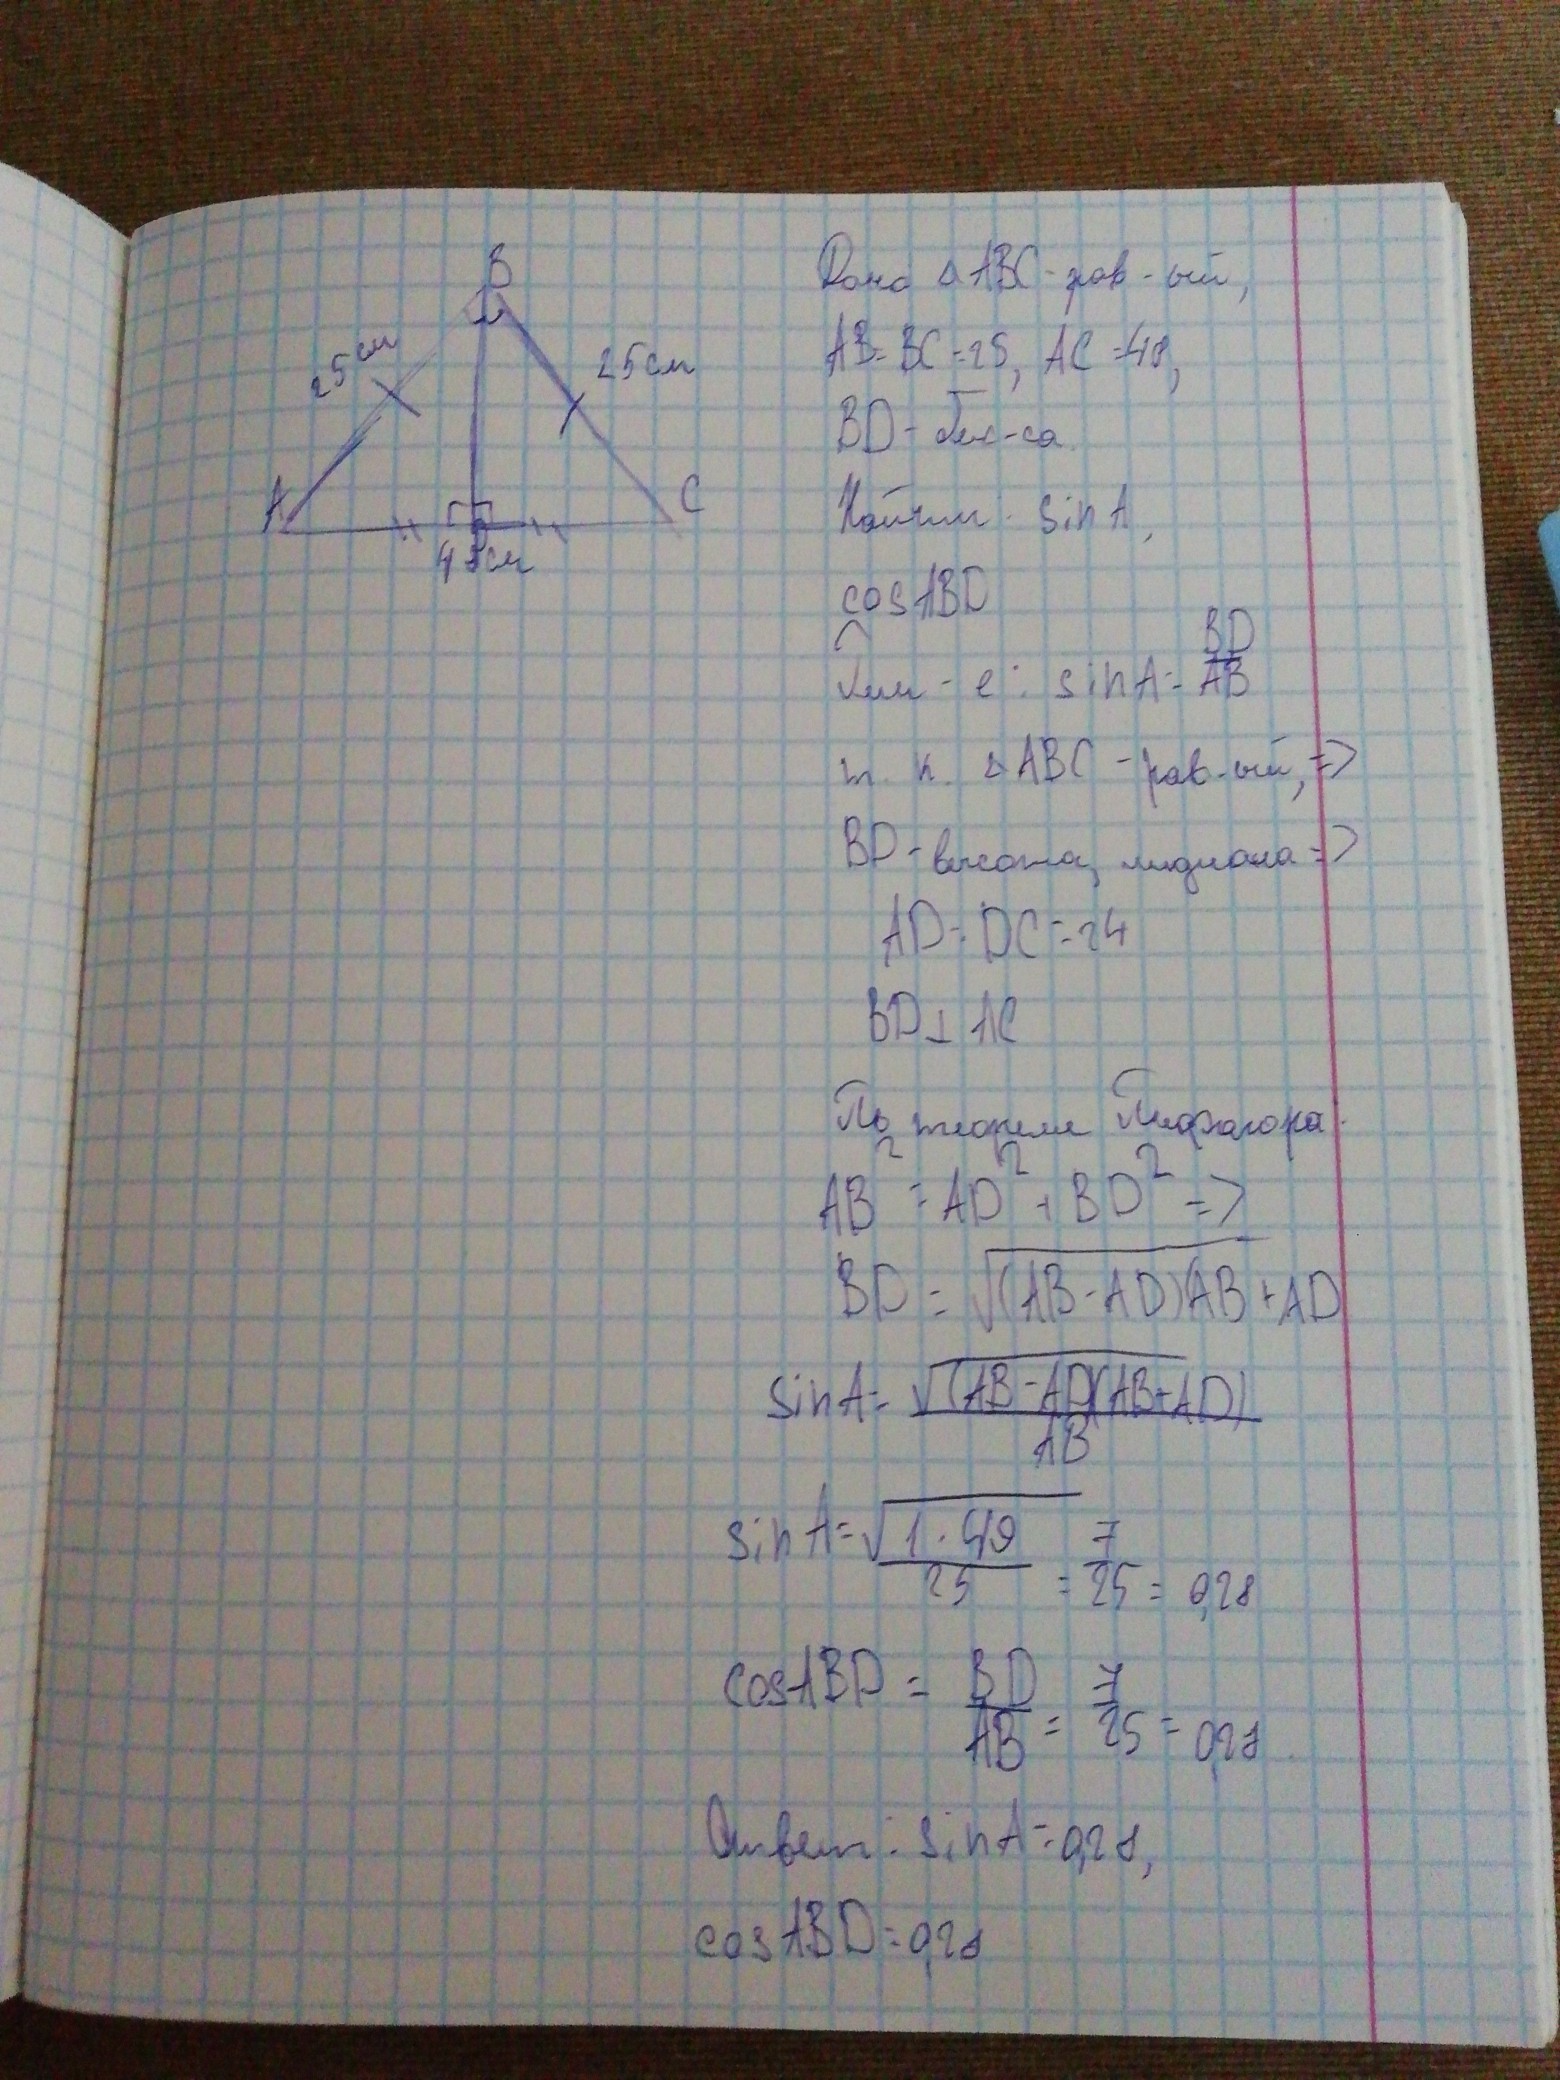 B
25см
25см
A
C
D
48см
Дано ΔABC - рав-ый,
AB = BC = 25, AC = 48,
BD - бис-са.
Найти: sin A,
cos ABD
sin A = BD/AB
т. к. ΔABC - рав-ый, =>
BD - высота, медиана =>
AD = DC = 24
BD ⊥ AC
По теореме Пифагора.
AB² = AD² + BD² =>
BD = √(AB - AD)(AB + AD
sin A = √(AB - AD)(AB + AD)/AB
sin A = √1 · 49/25 = 7/25 = 0,28
cos ABD = BD/AB = 7/25 = 0,28
Ответ: sin A = 0,28,
cos ABD = 0,28